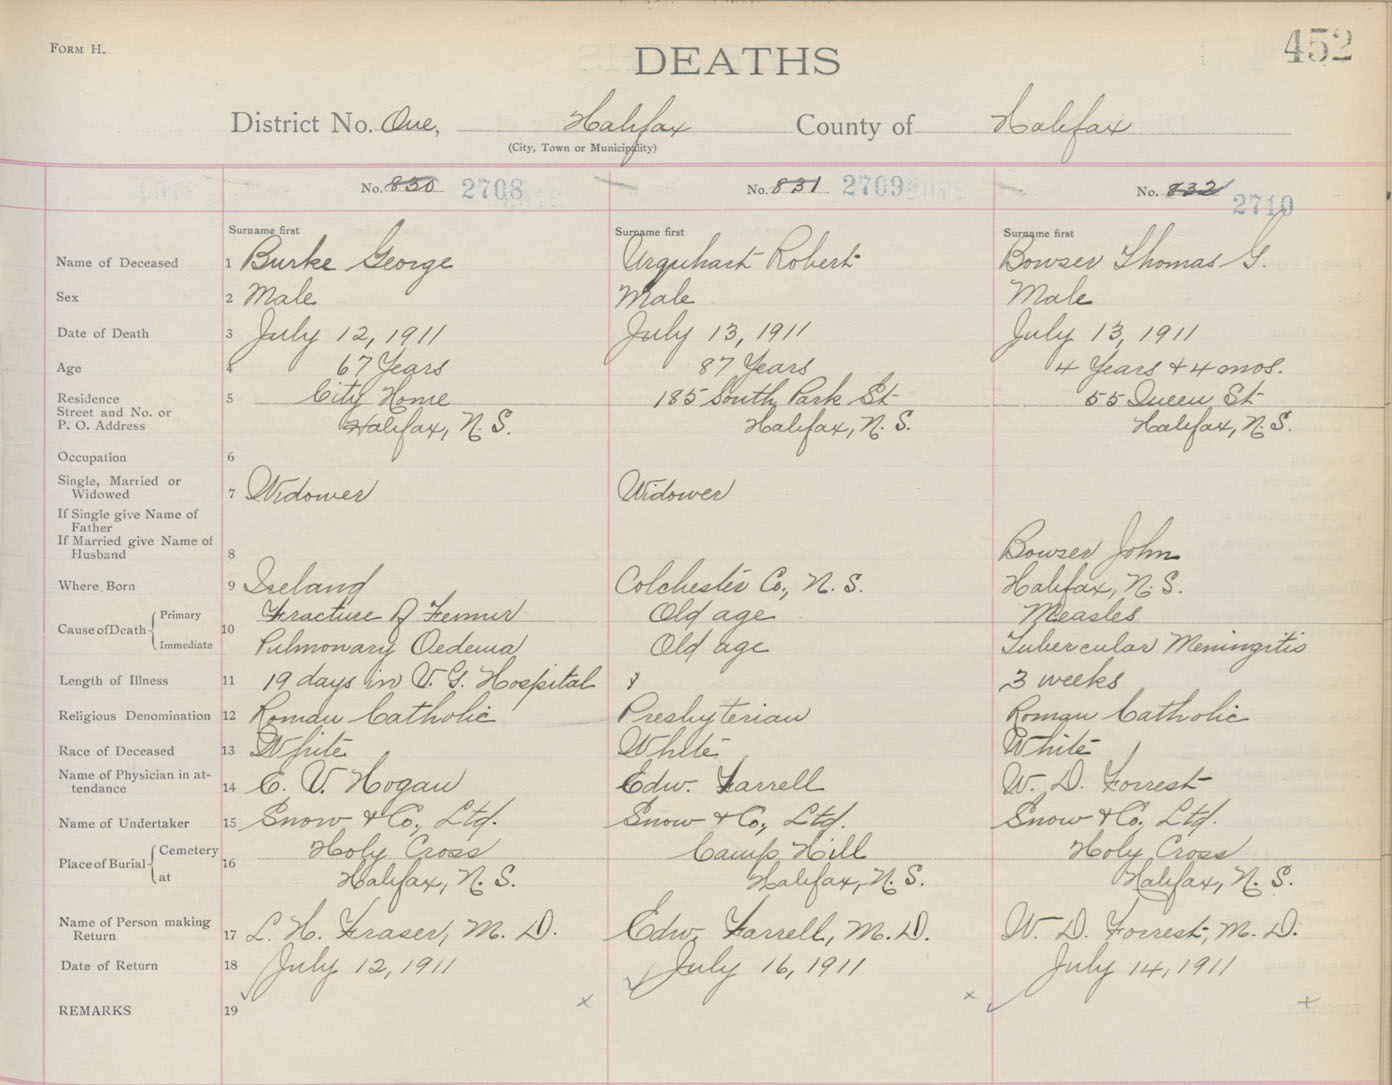 FORM H.
DEATHS
452
District No. One, Halifax County of Halifax
(City, Town or Municipality)
No. 830 2708 No. 831 2709 No. 832 2710
Surname first Surname first Surname first
Name of Deceased 1 Burke George Urquhart Robert Bowser Thomas G.
Sex 2 Male Male Male
Date of Death 3 July 12, 1911 July 13, 1911 July 13, 1911
Age 4 67 Years 87 Years 4 Years & 4 mos.
Residence 5 City Home 185 South Park St 55 Queen St
Street and No. or
P. O. Address Halifax, N. S. Halifax, N. S. Halifax, N. S.
Occupation 6
Single, Married or
Widowed 7 Widower Widower
If Single give Name of
Father
If Married give Name of
Husband 8 Bowser John
Where Born 9 Ireland Colchester Co., N. S. Halifax, N. S.
Cause of Death Primary 10 Fracture of Femur Old age Measles
Immediate Pulmonary Oedema Old age Tubercular Meningitis
Length of Illness 11 19 days in V. G. Hospital 3 weeks
Religious Denomination 12 Roman Catholic Presbyterian Roman Catholic
Race of Deceased 13 White White White
Name of Physician in at-
tendance 14 E. V. Hogan Edw. Farrell W. D. Forrest
Name of Undertaker 15 Snow & Co., Ltd. Snow & Co., Ltd. Snow & Co., Ltd.
Place of Burial Cemetery 16 Holy Cross Camp Hill Holy Cross
at Halifax, N. S. Halifax, N. S. Halifax, N. S.
Name of Person making
Return 17 L. H. Fraser, M. D. Edw. Farrell, M. D. W. D. Forrest, M. D.
Date of Return 18 July 12, 1911 July 16, 1911 July 14, 1911
REMARKS 19